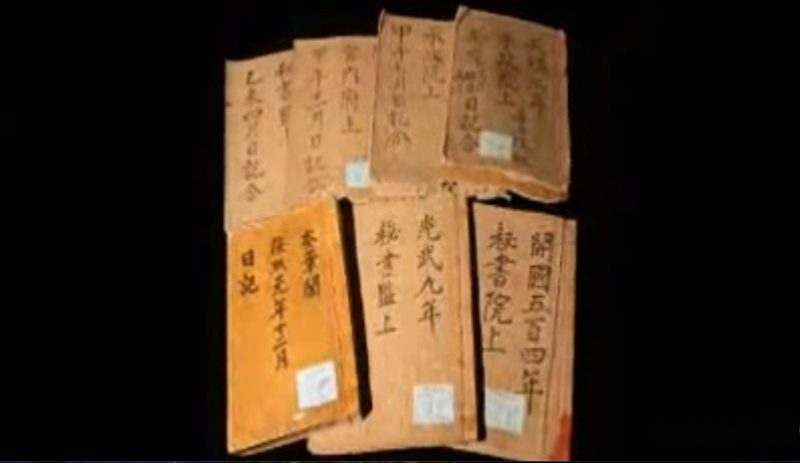 承政院上
承宣院上
宮内府上
甲午十一月日記
秘書監上
乙未四月日記合
開國五百四年
秘書院上
光武九年
秘書監上
奎章閣
隆熙元年十二月
日記